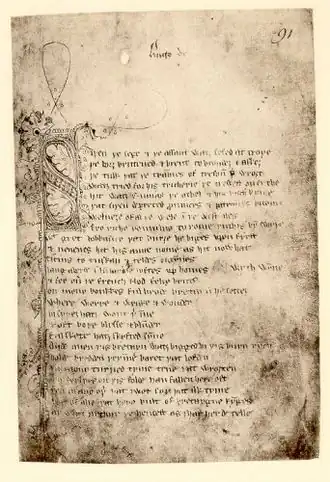 91
Siþen þe sege & þe assaut watȝ sesed at troye
þe borȝ brittened & brent to brondeȝ & askeȝ
þe tulk þat þe trammes of tresoun þer wroȝt
watȝ tried for his tricherie þe trewest on erthe
hit watȝ ennias þe athel & his highe kynde
þat siþen depreced prouinces & patrounes bicome
welneȝe of al þe wele in þe west iles
fro riche romulus to rome ricchis hym swyþe
gret bobbaunce þat burȝe he biges vpon fyrst
& neuenes hit his aune nome as hit now hat
ticius to tuskan & teldes bigynnes
langaberde in lumbardie lyftes vp homes wyth wynne
& fer ouer þe french flod felix brutus
on mony bonkkes ful brode bretayn he setteȝ
where werre & wrake & wonder
bi syþeȝ hatȝ wont þer inne
& oft boþe blysse & blunder
ful skete hatȝ skyfted synne
Ande quen þis bretayn watȝ bigged bi þis burn rych
bolde bredden þer inne baret þat lofden
in mony turned tyme tene þat wroȝten
mo ferlyes on þis folde han fallen here oft
þen in any oþer þat I wot syn þat ilk tyme
bot of alle þat here bult of bretaygne kynges
ay watȝ arthur þe hendest as I haf herde telle